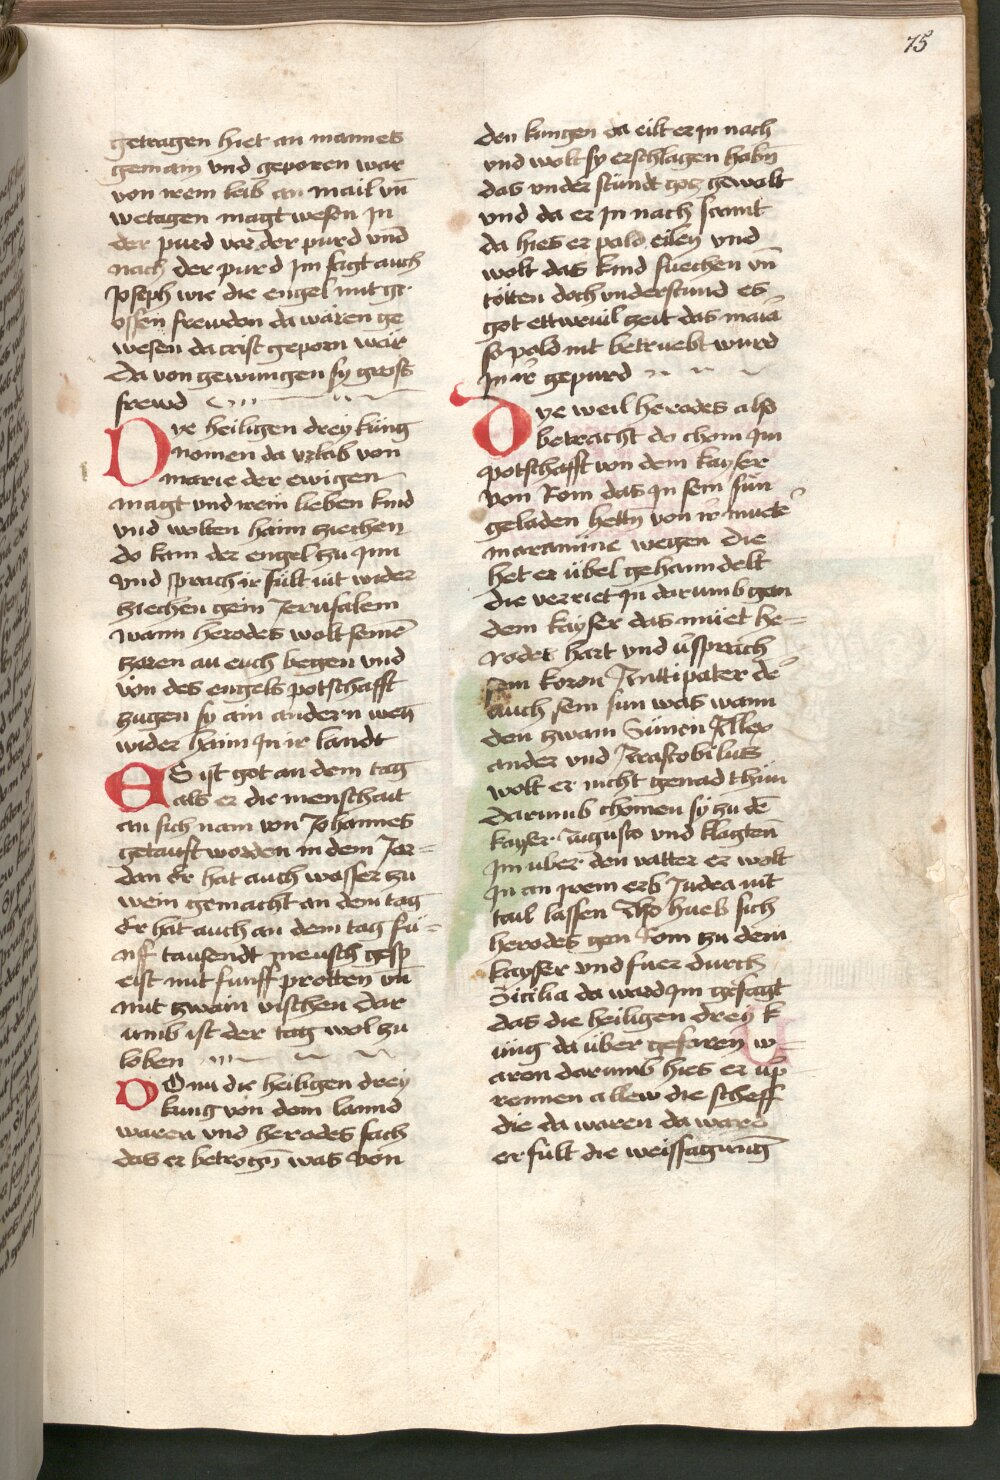 75
getragen hiet an mannes
gemain vnd geporen war
von irem leib an mail vn̄
wetagen magt wesen in
der purd vor der purd vnd
nach der purd Im sagt auch
Joseph wie die engel mit gr
ossen frewdon da wären ge
wesen da crist geporn wär
Da von gewungen sy gross
frewd
Dye heiligen drey küng
nomen da vrlab von
marie der ewigen
magt vnd irem lieben kind
vnd wolten haim ziechen
do kam der engel zu Inn
vnd sprach ir sült nit wider
ziechen gein Jerusalem
wann herodes wolt seinē
zoren an euch begen vnd
von des engels potschafft
zugen sy ain andern weg
wider haim In ir landt
ES ist got an dem tag
als er die menschait
an sich nam von Johannes
getauft worden in dem Jor=
dan Er hat auch wasser zu
wein gemacht an dem tag
Er hat auch an dem tag fü=
nff tausendt mensch gesp
eist mit funff protten vn̄
mit zwain vischen dar
umb ist der tag wol zu
loben
DO nu die heiligen drey
kung von dem lannd
waren vnd herodes sach
das er betrogn̄ was von
den kungen da eilt er In nach
vnd wolt sy erschlagen habn̄
das vnder stündt gocz gewalt
vnd da er In nach sannt
da hies er pald eilen vnd
wolt das kind suechen vn̄
tötten doch vnderstund es
got ettweuil zeit das maria
so pald nit betruebt wurd
In ir gepurd
Dye weil herodes also
betracht do chom Im
potschafft von dem kayser
von Rom das In sein sün
geladen hettn̄ von ir mueter
mariamüne wegen die
het er übel gehanndelt
die verriet In darumb gen
dem kayser das müet he=
rodes hart vnd v̓sprach
sein koron Anttipater de
auch sein sun was wann
den zwain Sünen Allex
ander vnd Arastobilus
wolt er nicht genad thün
darumb chomen sy zu dē
kayser Augusto vnd klagten
Im uber den vatter er wolt
In an irem erb Judea nit
tail lassen Also hueb sich
herodes gen Rom zu dem
kayser vnd fuer durch
Sicilia da ward Im gesagt
das die heiligen drey k
üng da über gefaren w=
aren darumb hies er v̓p
rennen allew die scheff
die da waren da ward
erfült die weissagung